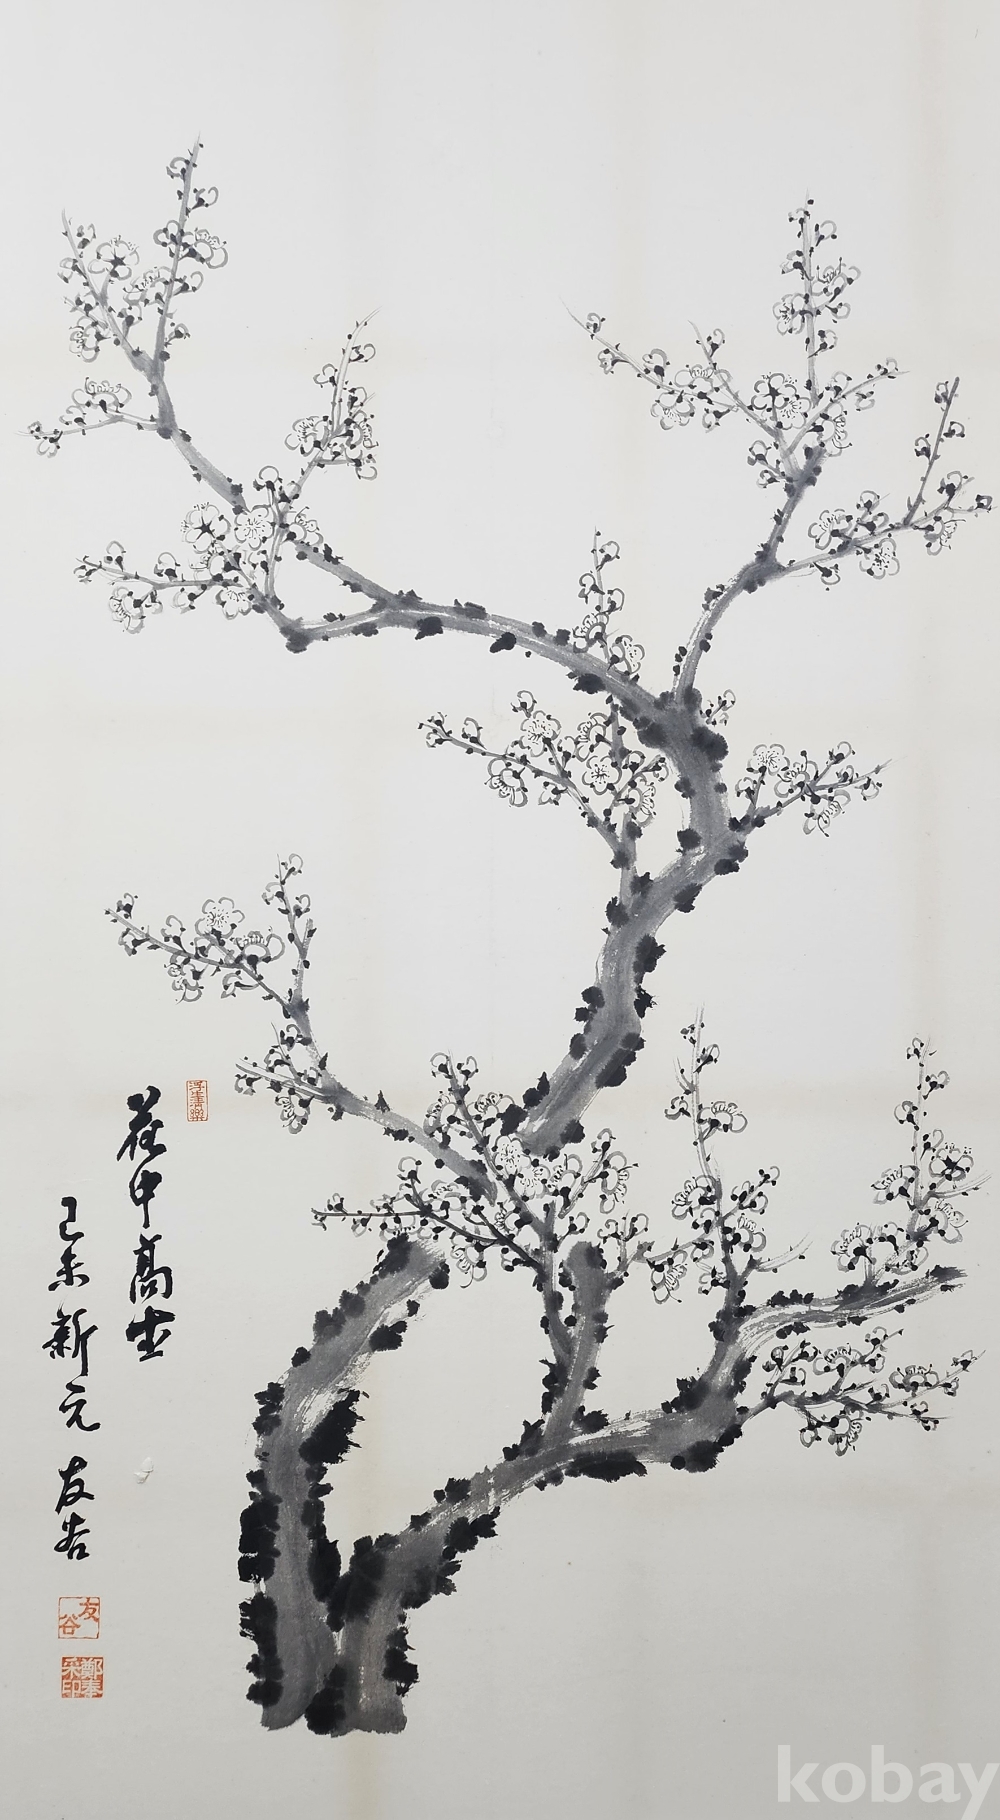 花中高士
己未新元 友谷
友谷
kobay